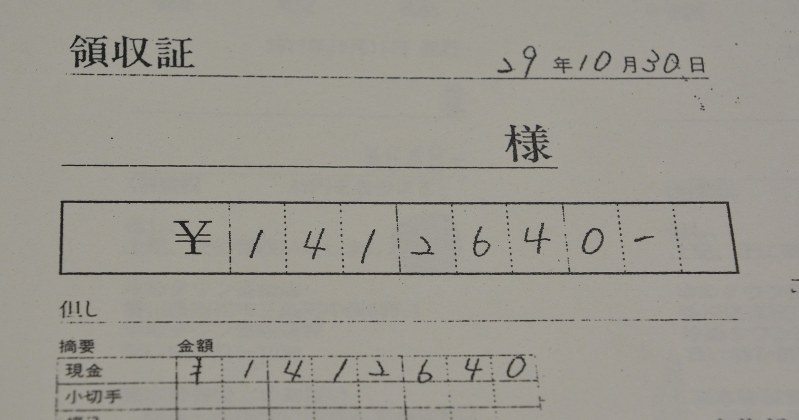 領収証
29年10月30日
様
¥1412640-
但し
摘要 金額
現金 ¥1412640
小切手